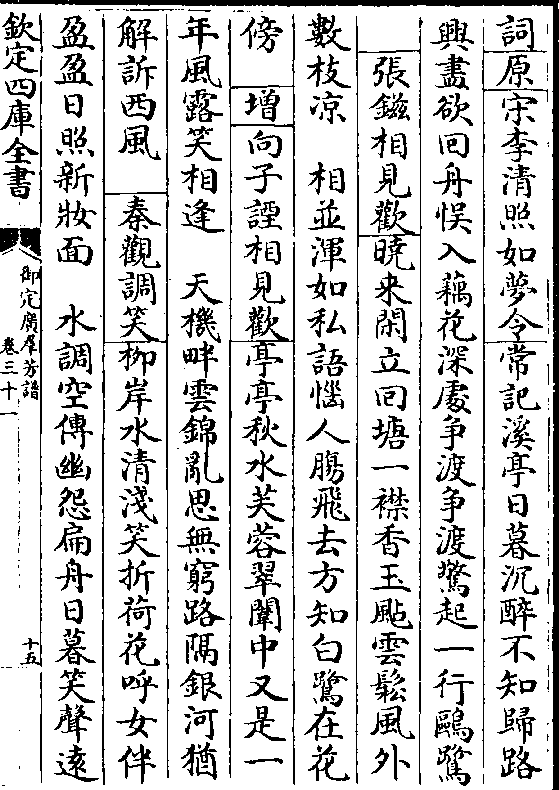 詞原宋李清照如夢令常記溪亭日暮沉醉不知歸路
興盡欲回舟悮入藕花深處争渡争渡驚起一行鷗鷺
張鎡相見歡曉來閑立回塘一襟香玉颭雲鬆風外
數枝凉　相並渾如私語惱人膓飛去方知白鷺在花
傍　增向子諲相見歡亭亭秋水芙蓉翠闈中又是一
年風露笑相逢　天機畔雲錦亂思無窮路隔銀河猶
解訴西風　秦觀調笑柳岸水清淺笑折荷花呼女伴
盈盈日照新妝面　水調空傳幽怨扁舟日暮笑聲遠
欽定四庫全書
御定廣羣芳譜
卷三十一
十五